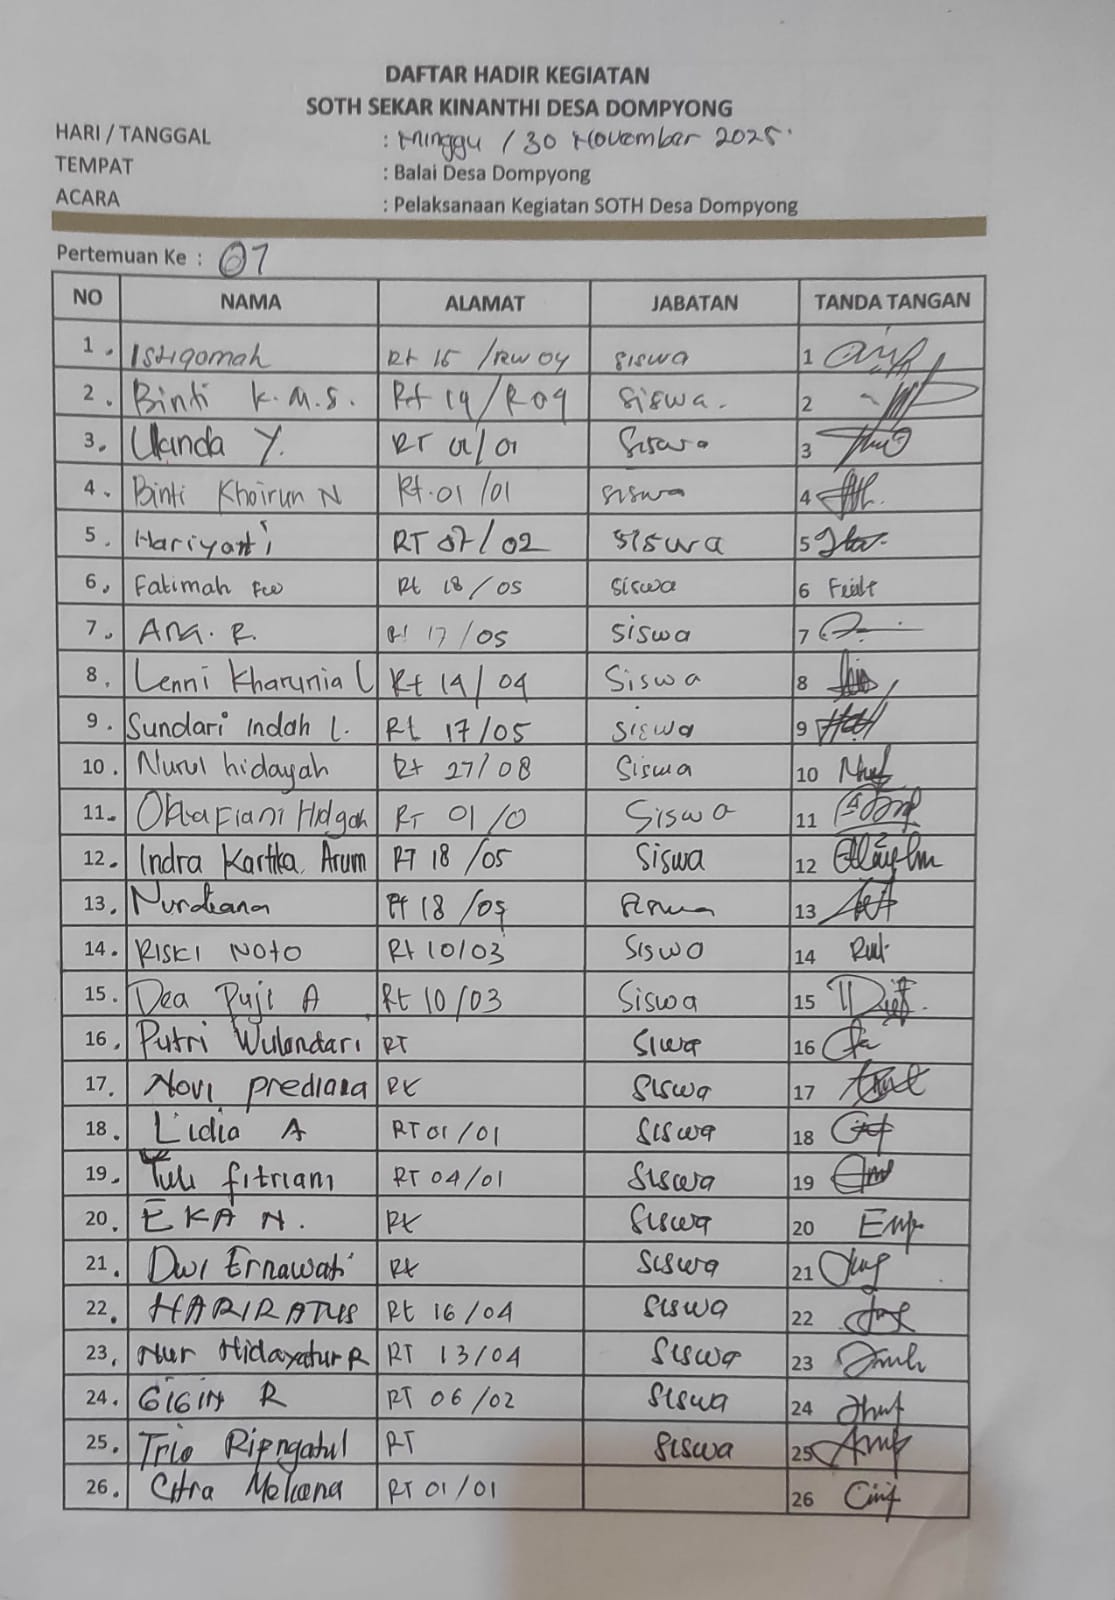 DAFTAR HADIR KEGIATAN
SOTH SEKAR KINANTHI DESA DOMPYONG
HARI / TANGGAL : Minggu / 30 November 2025
TEMPAT : Balai Desa Dompyong
ACARA : Pelaksanaan Kegiatan SOTH Desa Dompyong
Pertemuan Ke : 07
NO NAMA ALAMAT JABATAN TANDA TANGAN
1. Istiqomah Rt 15 /RW 04 siswa 1
2. Binti K.M.S. Rt 19/R 09 siswa. 2
3. Ulanda Y. RT 01/01 Siswa 3
4. Binti Khoirun N Rt.01/01 siswa 4
5. Hariyatti RT 07/02 siswa 5
6. Fatimah Rt 18/05 siswa 6
7. R. 17/05 siswa 7
8. Lenni Kharunia L Rt 14/04 Siswa 8
9. Sundari Indah L. Rt 17/05 siswa 9
10. Nurul hidayah Rt 27/08 Siswa 10
11. Oktafiani RT 01/0 Siswa 11
12. Indra Kartika Arum RT 18/05 Siswa 12
13. Nurdiana Rt 18/05 siswa 13
14. RISKI NOTO Rt 10/03 Siswa 14
15. Dea Puji A Rt 10/03 Siswa 15
16. Putri Wulandari RT Siwa 16
17. Novi prediana Rt Siswa 17
18. Lidia A RT 01/01 Siswa 18
19. Yuli fitriani RT 04/01 Siswa 19
20. EKA N. Rt Siswa 20
21. Dwi Ernawati Rt Siswa 21
22. HARIRATUS Rt 16/04 Siswa 22
23. Nur Hidayatur R RT 13/04 Siswa 23
24. GIGIN R RT 06/02 Siswa 24
25. Trio Ripngatul RT Siswa 25
26. Citra RT 01/01 26